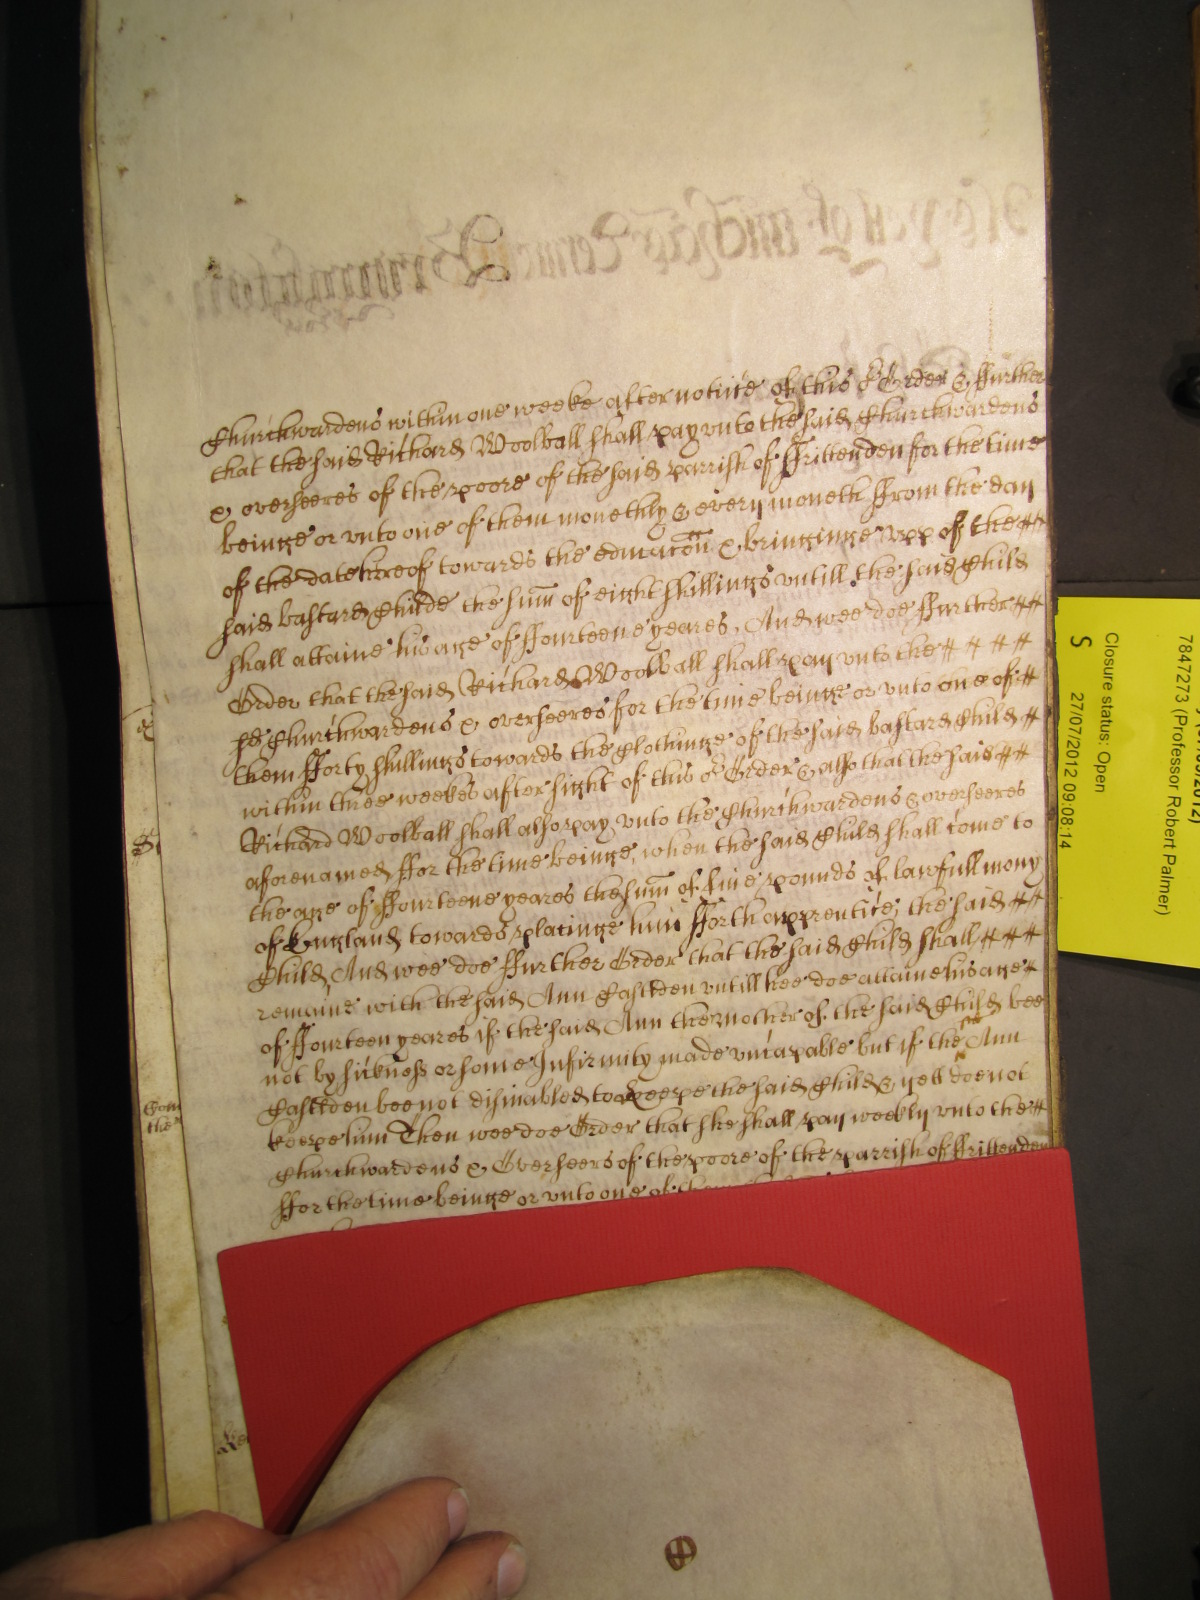 Churchwardens within one weeke after notice of this or Order & ffurther
that the said Richard Woolball shall pay unto the said Churchwardens
& overseeres of the poore of the said parrish of ffrittenden for the time
beinge or vnto one of them monethly & every moneth ffrom the day
of the date hereof towards the educacon & bringinge vpp of the
said bastard Childe the sum of eight shillings vntill the said Child
shall attaine his age of ffourteene yeares, And wee doe ffurther
Order that the said Richard Woolball shall pay vnto the
sd Churchwardens & overseeres for the time beinge or vnto one of
them fforty shillings towards the Clothinge of the said bastard Child
within three weekes after sight of this or Order & also that the said
Richard Woolball shall also pay vnto the Churchwardens & overseeres
aforenamed ffor the time beinge, when the said Child shall come to
the age of ffourteene yeares the sum of five pounds of lawfull mony
of England towards placinge him fforth apprentice, the said
Child, And wee doe ffurther Order that the said Child shall
remaine with the said Ann Castden vntill hee doe attaine his age
of ffourteen yeares if the said Ann the mother of the said Child bee
not by sicknes or some Infirmity made vncapable but if the sd Ann
Castden bee not disinabled to keepe the said Child & yett doe not
keepe him Then wee doe Order that she shall pay weekly vnto the
Churchwardens & Overseers of the poore of the parrish of ffrittenden
ffor the time beinge or vnto one of them
7847273 (Professor Robert Palmer)
Closure status: Open
S 27/07/2012 09:08:14